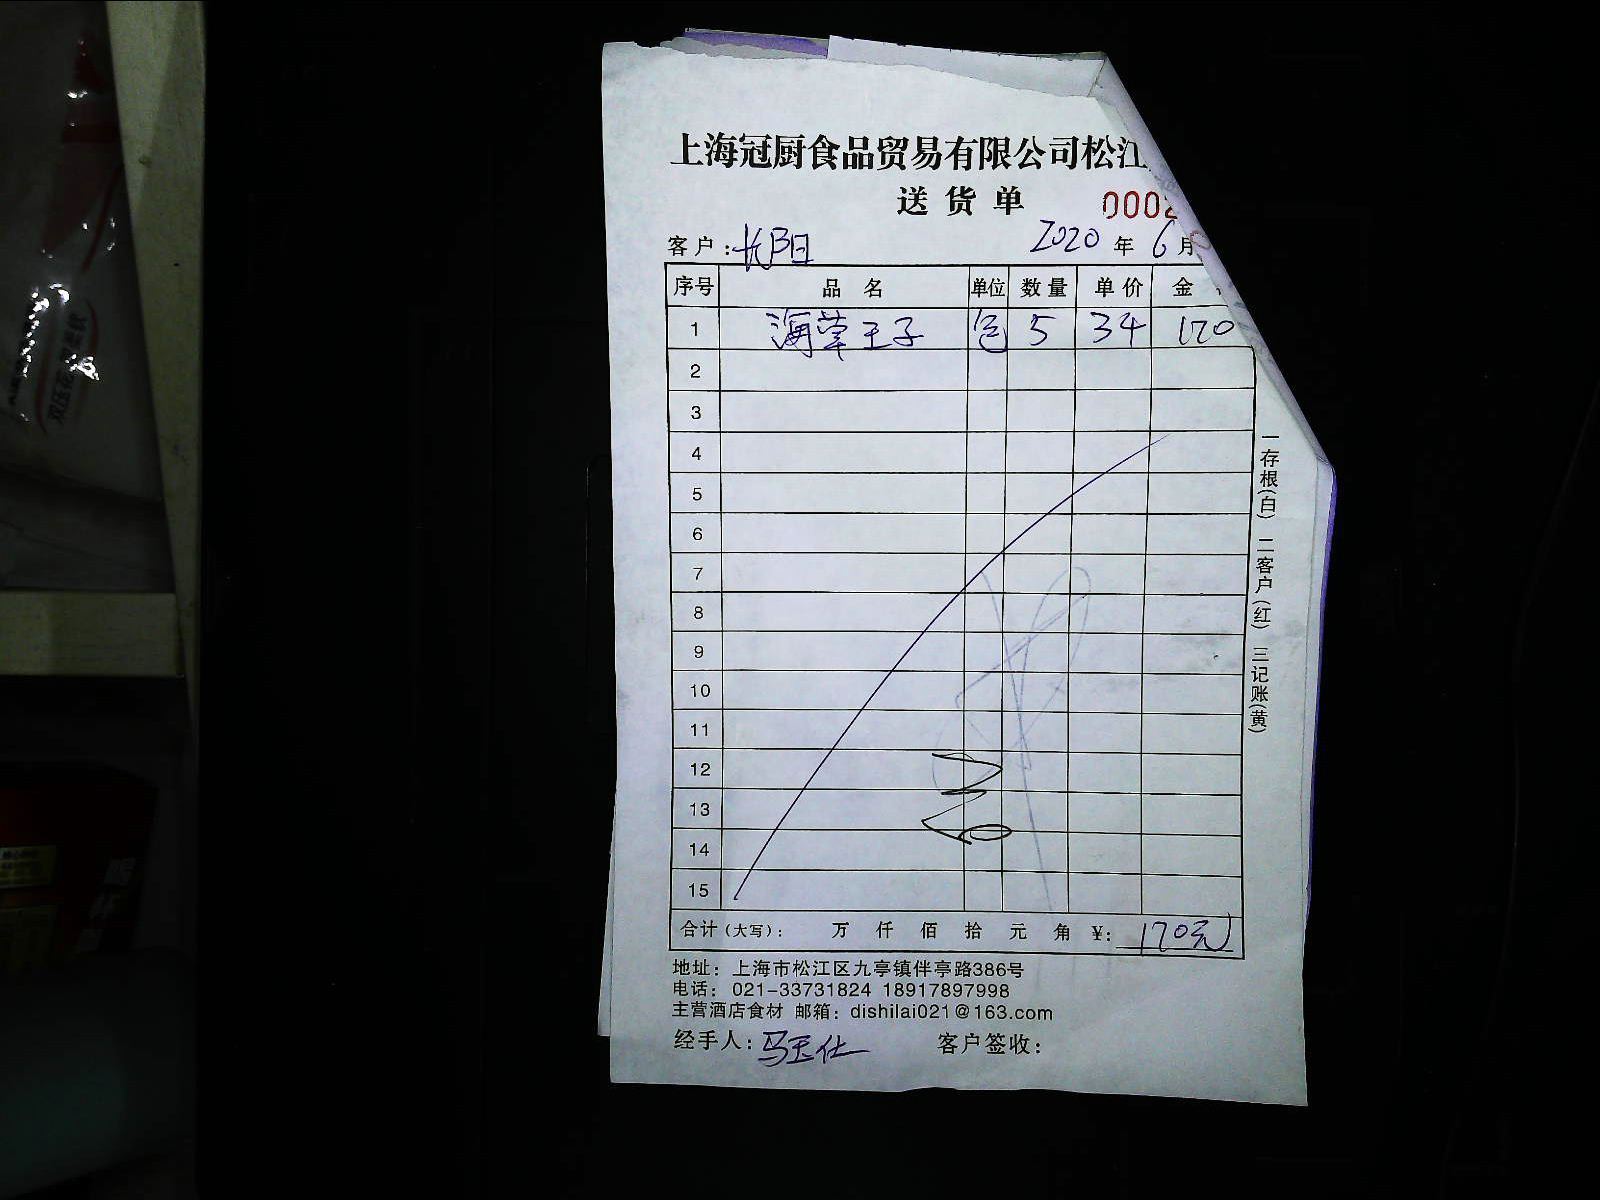 上海冠厨食品贸易有限公司松江
送货单 0002
客户:长阳 2020年6月
序号 品名 单位 数量 单价 金
1 海草王子 包 5 34 170
2
3
4
5
6
7
8
9
10
11
12
13
14
15
合计(大写): 万 仟 佰 拾 元 角 ¥: 170元
地址: 上海市松江区九亭镇伴亭路386号
电话: 021-33731824 18917897998
主营酒店食材 邮箱: dishilai021@163.com
经手人:马玉仕 客户签收:
一存根(白) 二客户(红) 三记账(黄)